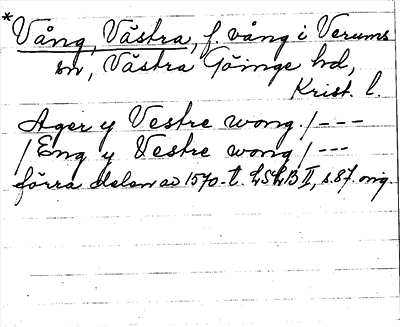 * Vång, Västra, f. vång i Verums
sn, Västra Göinge hd,
Krist. l.
Ager y Vestre wong. / ---
/ Eng y Vestre wong / ---
förra delen av 1570-t. LSLB II, s. 87. orig.